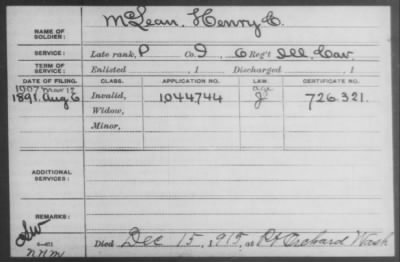 NAME OF SOLDIER: McLean, Henry C.
SERVICE: Late rank, P Co. I, 6 Reg't Ill. Cav.
TERM OF SERVICE: Enlisted , 1 Discharged , 1
DATE OF FILING. CLASS. APPLICATION NO. LAW. CERTIFICATE NO.
1907 Mar 12 age
1891. Aug 6 Invalid, 1044744 J 726.321.
Widow,
Minor,
ADDITIONAL SERVICES:
REMARKS:
3-471
Died Dec 15, 1915, at Pt Orchard Wash